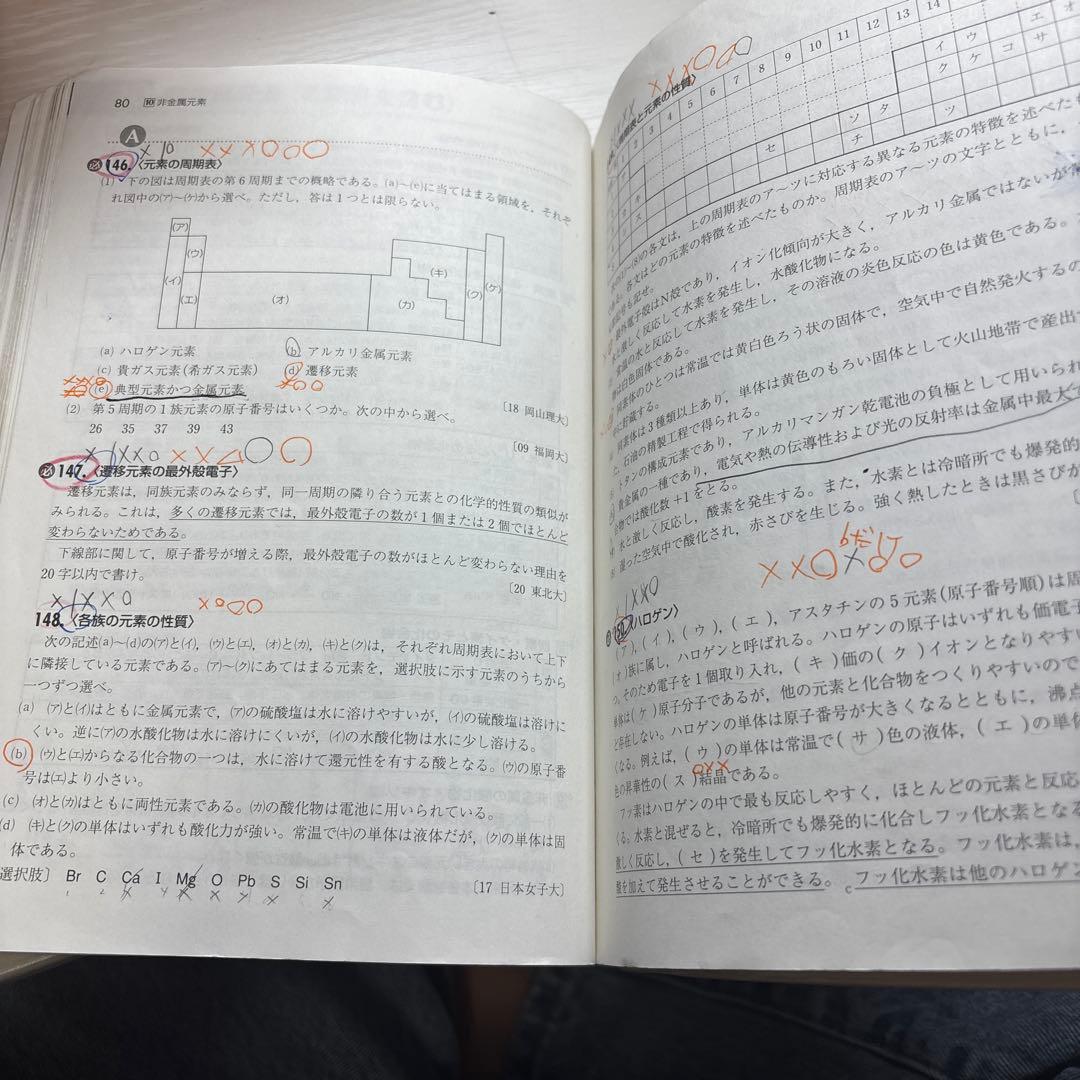 80 10 非金属元素
A
必 146. 〈元素の周期表〉
(1) 下の図は周期表の第6周期までの概略である。(a)~(e)に当てはまる領域を，それぞ
れ図中の(ア)~(ケ)から選べ。ただし，答は1つとは限らない。
(ア)
(ウ)
(イ)
(エ)
(オ)
(カ)
(キ)
(ク)
(ケ)
(a) ハロゲン元素 (b) アルカリ金属元素
(c) 貴ガス元素(希ガス元素) (d) 遷移元素
(e) 典型元素かつ金属元素 〔18 岡山理大〕
(2) 第5周期の1族元素の原子番号はいくつか。次の中から選べ。
26 35 37 39 43 〔09 福岡大〕
必 147. 〈遷移元素の最外殻電子〉
遷移元素は，同族元素のみならず，同一周期の隣り合う元素との化学的性質の類似が
みられる。これは，多くの遷移元素では，最外殻電子の数が1個または2個でほとんど
変わらないためである。
下線部に関して，原子番号が増える際，最外殻電子の数がほとんど変わらない理由を
20字以内で書け。 〔20 東北大〕
148. 〈各族の元素の性質〉
次の記述(a)~(d)の(ア)と(イ)，(ウ)と(エ)，(オ)と(カ)，(キ)と(ク)は，それぞれ周期表において上下
に隣接している元素である。(ア)~(ク)にあてはまる元素を，選択肢に示す元素のうちから
一つずつ選べ。
(a) (ア)と(イ)はともに金属元素で，(ア)の硫酸塩は水に溶けやすいが，(イ)の硫酸塩は溶けに
くい。逆に(ア)の水酸化物は水に溶けにくいが，(イ)の水酸化物は水に少し溶ける。
(b) (ウ)と(エ)からなる化合物の一つは，水に溶けて還元性を有する酸となる。(ウ)の原子番
号は(エ)より小さい。
(c) (オ)と(カ)はともに両性元素である。(カ)の酸化物は電池に用いられている。
(d) (キ)と(ク)の単体はいずれも酸化力が強い。常温で(キ)の単体は液体だが，(ク)の単体は固
体である。
選択肢〕 Br C Ca I Mg O Pb S Si Sn 〔17 日本女子大〕
周期表と元素の性質〉
1 2 3 4 5 6 7 8 9 10 11 12 13 14
イ ウ エ オ
ク ケ コ サ
セ ソ タ
チ ツ
(8)の各文は，上の周期表のア~ツに対応する異なる元素の特徴を述べたも
各文はどの元素の特徴を述べたものか。周期表のア~ツの文字とともに，
号も記せ。
最外電子殻はN殻であり，イオン化傾向が大きく，アルカリ金属ではないが常
激しく反応して水素を発生し，水酸化物になる。
常温の水と反応して水素を発生し，その溶液の炎色反応の色は黄色である。
は白色固体である。
同素体のひとつは常温では黄白色ろう状の固体で，空気中で自然発火するの
に貯蔵する。
同素体は3種類以上あり，単体は黄色のもろい固体として火山地帯で産出
た，石油の精製工程で得られる。
トタンの構成元素であり，アルカリマンガン乾電池の負極として用いられ
貴金属の一種であり，電気や熱の伝導性および光の反射率は金属中最大で
合物では酸化数+1をとる。
水と激しく反応し，酸素を発生する。また，水素とは冷暗所でも爆発的
湿った空気中で酸化され，赤さびを生じる。強く熱したときは黒さびが
bだけ
150. 〈ハロゲン〉
(ア)，(イ)，(ウ)，(エ)，アスタチンの5元素(原子番号順)は周
(オ)族に属し，ハロゲンと呼ばれる。ハロゲンの原子はいずれも価電子
つ。そのため電子を1個取り入れ，(キ)価の(ク)イオンとなりやすい
単体は(ケ)原子分子であるが，他の元素と化合物をつくりやすいので
ど存在しない。ハロゲンの単体は原子番号が大きくなるとともに，沸点
くなる。例えば，(ウ)の単体は常温で(サ)色の液体，(エ)の単体
色の昇華性の(ス)結晶である。
フッ素はハロゲンの中で最も反応しやすく，ほとんどの元素と反応
くる。水素と混ぜると，冷暗所でも爆発的に化合しフッ化水素となる
激しく反応し，(セ)を発生してフッ化水素となる。フッ化水素は，
酸を加えて発生させることができる。cフッ化水素は他のハロゲン